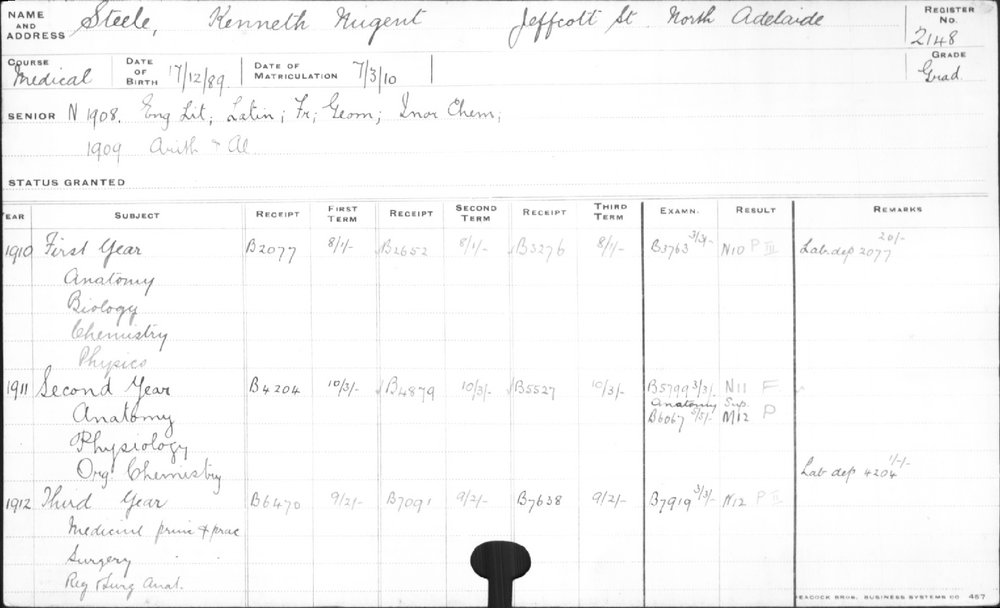 NAME AND ADDRESS Steele, Kenneth Nugent Jeffcott St. North Adelaide REGISTER No. 2148
COURSE Medical DATE OF BIRTH 17/12/89. DATE OF MATRICULATION 7/3/10 GRADE Grad.
SENIOR N 1908. Eng Lit; Latin; Fr; Geom; Inor Chem;
1909 Arith + Al
STATUS GRANTED
YEAR SUBJECT RECEIPT FIRST TERM RECEIPT SECOND TERM RECEIPT THIRD TERM EXAMN. RESULT REMARKS
1910 First Year B2077 8/1/- B2652 8/1/- B3276 8/1/- B3763 3/3/- N10 P III Lab. dep 2077 20/-
Anatomy
Biology
Chemistry
Physics
1911 Second Year B4204 10/3/- B4879 10/3/- B5527 10/3/- B5799 3/3/- N11 F
Anatomy Anatomy Sup.
B6067 5/5/- M12 P
Physiology
Org. Chemistry Lab dep 4204 1/-/-
1912 Third Year B6470 9/2/- B7091 9/2/- B7638 9/2/- B7919 3/3/- N12 P II
Medicine prin + prac
Surgery
Reg & Surg Anat.
PEACOCK BROS. BUSINESS SYSTEMS CO 457